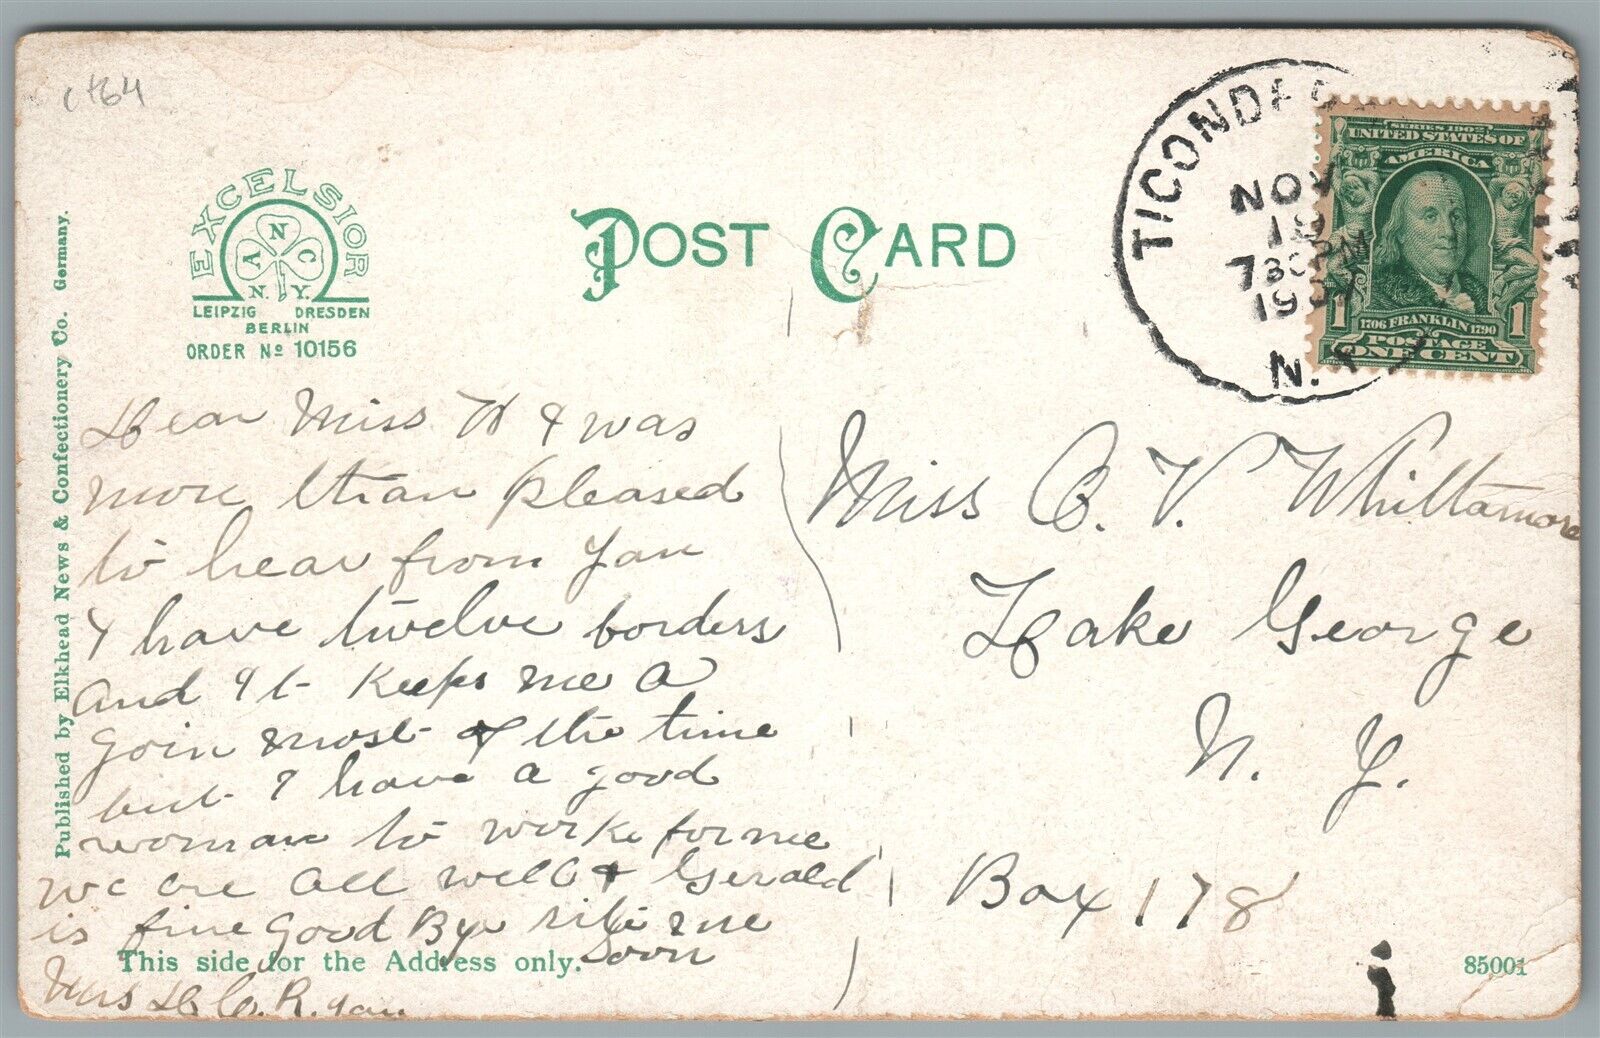 c464
EXCELSIOR
A N C
N. Y.
LEIPZIG DRESDEN
BERLIN
ORDER No 10156
POST CARD
TICONDE
NOV
19
730PM
1907
N. Y.
SERIES 1902
UNITED STATES OF
AMERICA
1 1
1706 FRANKLIN 1790
POSTAGE
ONE CENT
Published by Elkhead News & Confectionery Co. Germany.
Dear Miss W I was
more than pleased
to hear from you
I have twelve borders
and it keeps me a
goin most of the time
but I have a good
woman to work for me
we are all well & Gerald
is fine Good Bye rite me
Soon
This side for the Address only.
Mrs L C. Ryan
Miss C. V. Whittamore
Lake George
N. Y.
Box 178
85001